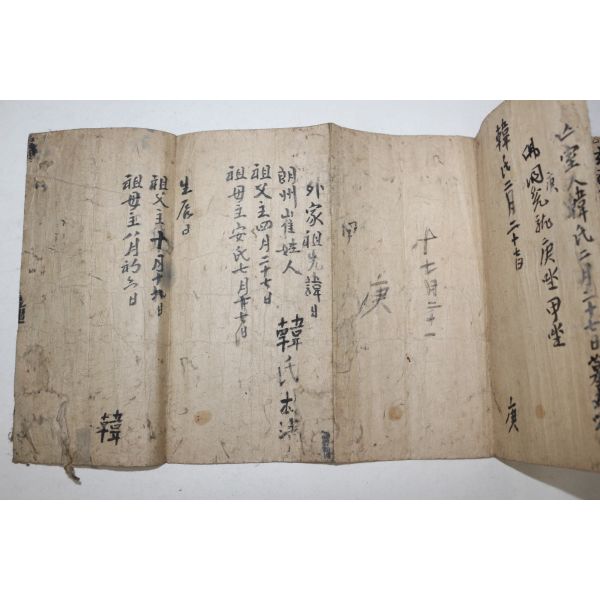 亡室人韓氏二月二十七日
庚坐甲坐
庚
韓氏二月二十七日
庚
十七月二十一
庚
外家祖先諱日
朗州崔姓人
祖父主四月二十七日
祖母主安氏七月廿七日
韓氏本
生辰日
祖父主十月十九日
祖母主八月初六日
韓